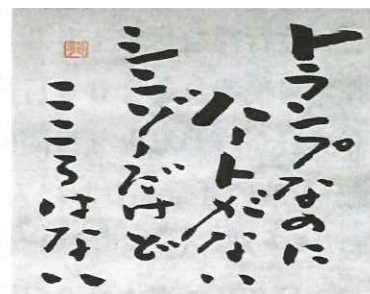 トランプなのに
ハートがない
シンゾーだけど
こころはない